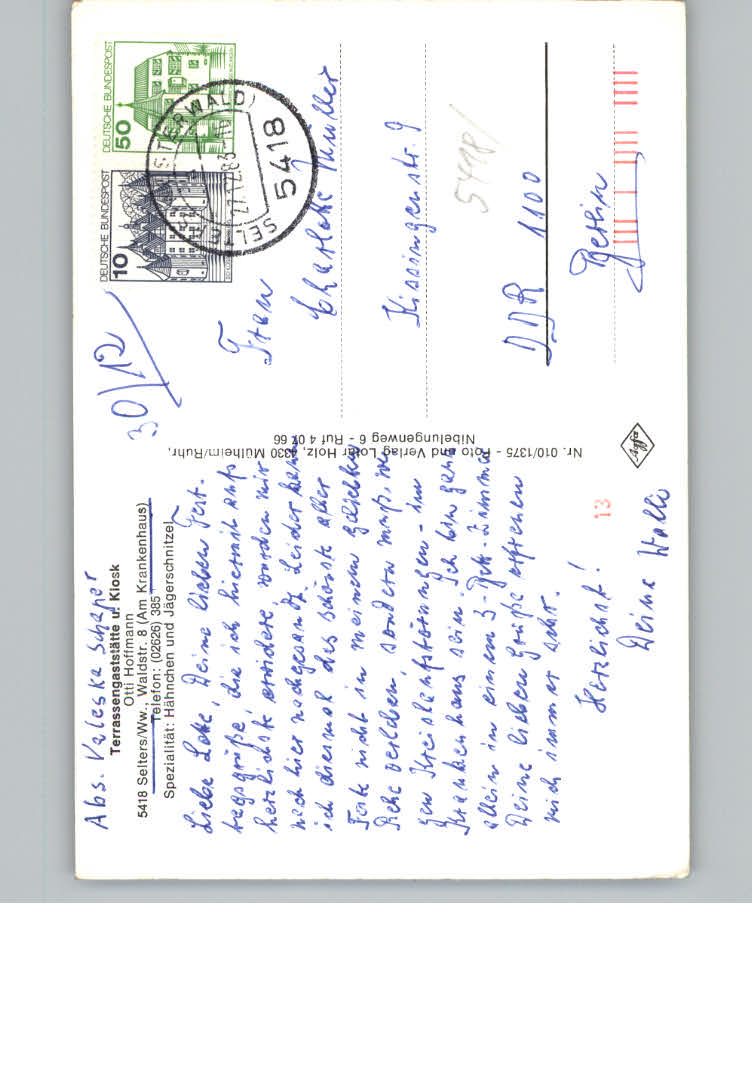 Abs. Valeska Schaper
Terrassengaststätte u. Kiosk
Otti Hoffmann
5418 Selters/Ww., Waldstr. 8 (Am Krankenhaus)
Telefon: (02626) 385
Spezialität: Hähnchen und Jägerschnitzel
Liebe Lotte, Deine lieben Fest-
tagsgrüße, die ich hiermit aufs
herzlichste erwidere, wurden mir
nach hier nachgesandt. Leider kann
ich diesmal das schönste aller
Feste nicht in meinem geliebten
Rehe verleben, sondern muß, we-
gen Kreislaufstörungen - im
Krankenhaus sein. Ich bin ganz
allein in einem 3-Bett-Zimmer
Deine lieben Grüße erfreuen
mich immer sehr.
Herzlichst!
Deine Walli
13
Nr. 010/1375 - Foto und Verlag Lothar Holz, 4330 Mülheim/Ruhr,
Nibelungenweg 6 - Ruf 4 07 66
Agfa
30/12
DEUTSCHE BUNDESPOST
10
DEUTSCHE BUNDESPOST
50
SELTERS (WESTERWALD)
27.12.83
5418
Frau
Charlotte Müller
Kissingenstr. 9
5418/
DDR 1100
Berlin